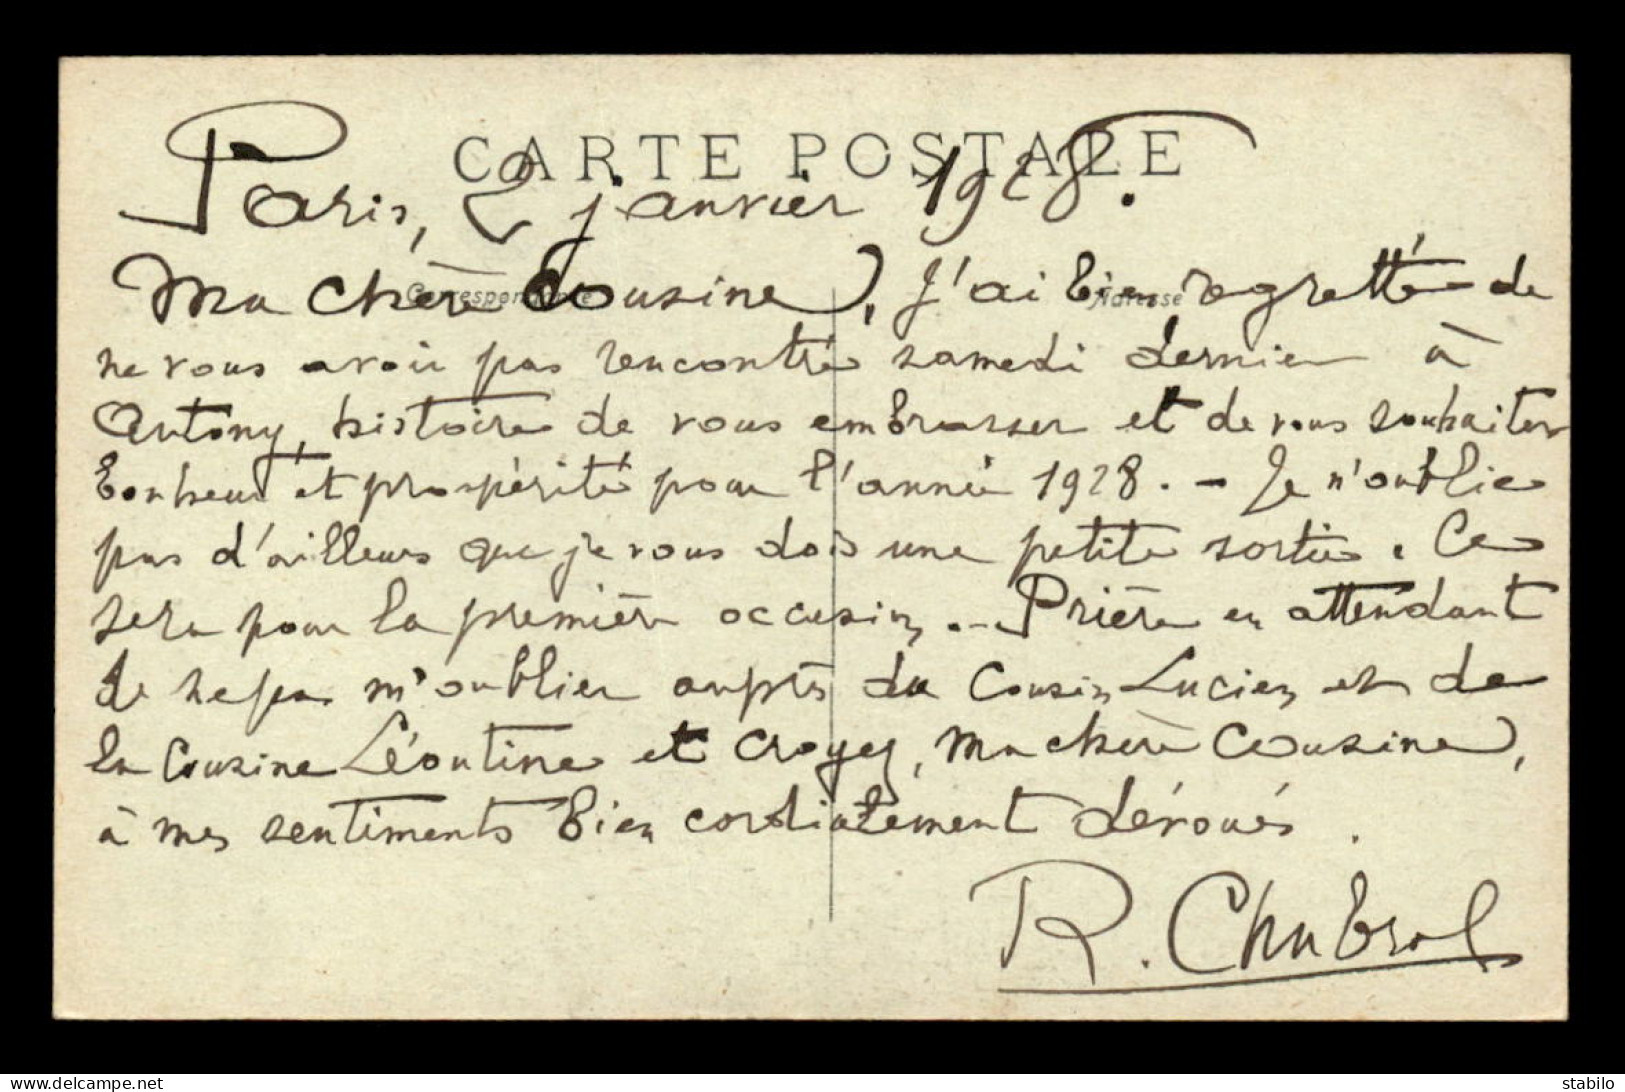 CARTE POSTALE
Paris, 2 janvier 1928.
Correspondance
Adresse
Ma chère Cousine, J'ai bien regretté de
ne vous avoir pas rencontrée samedi dernier à
Antony, histoire de vous embrasser et de vous souhaiter
bonheur et prospérité pour l'année 1928. - Je n'oublie
pas d'ailleurs que je vous dois une petite sortie. Ce
sera pour la première occasion. - Prière en attendant
de ne pas m'oublier auprès du Cousin Lucien et de
la Cousine Léontine et croyez, ma chère Cousine,
à mes sentiments bien cordialement dévoués.
R. Chabrol
stabilo